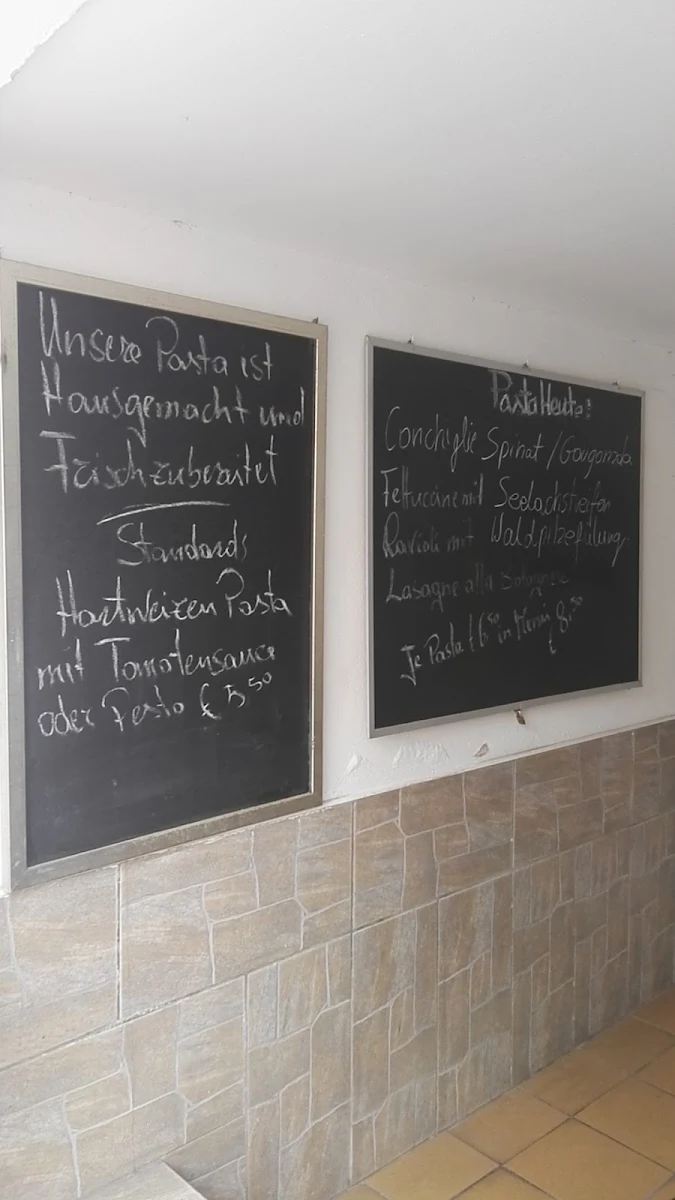 Unsere Pasta ist
Hausgemacht und
Frischzubereitet
Standards
Hartweizen Pasta
mit Tomatensauce
oder Pesto € 5 50
Pasta Heute:
Conchiglie Spinat / Gorgonzola
Fettucine mit Seelachsstreifen
Ravioli mit Waldpilzfüllung
Lasagne alla Bolognese
Je Pasta € 6 50 in Menü € 8 50